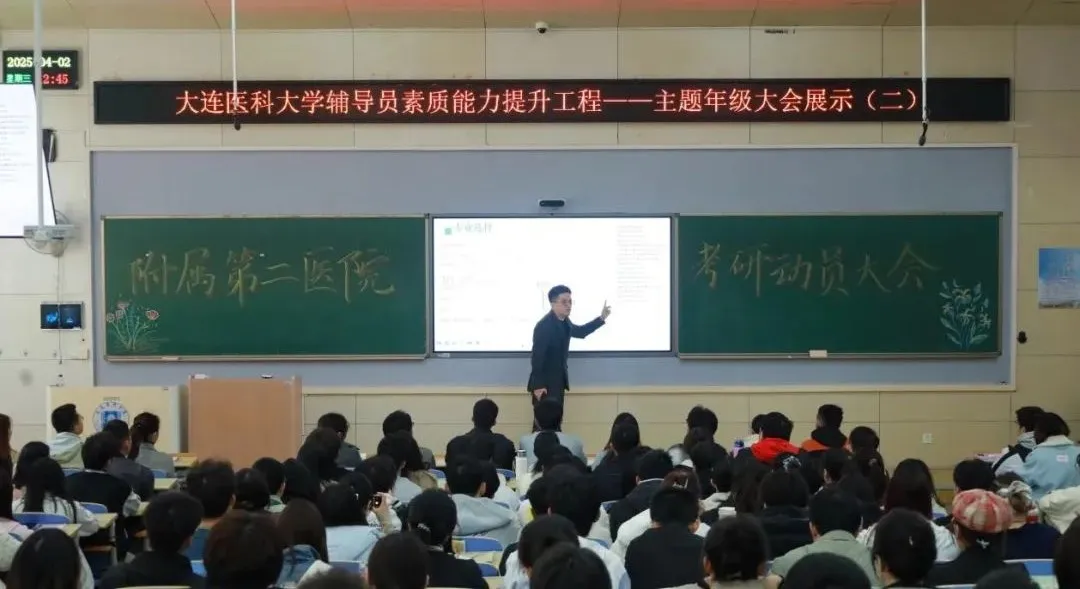 2025-04-02
星期三 12:45
大连医科大学辅导员素质能力提升工程——主题年级大会展示（二）
附属第二医院
专业选择
考研动员大会